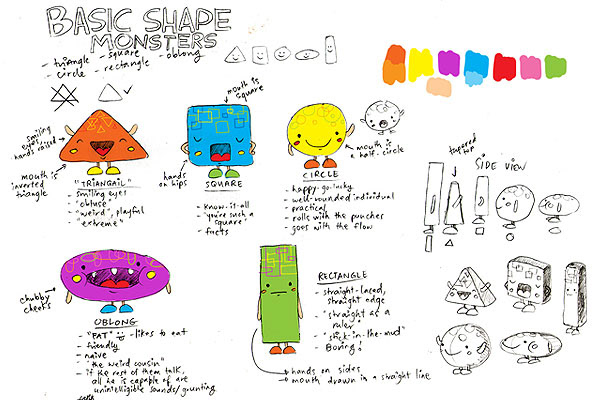 BASIC SHAPE
MONSTERS
- triangle - square - oblong
- circle - rectangle
smiling
eyes,
hands raised
mouth is
inverted
triangle
"TRIANGAIL"
- smiling eyes
- "obtuse"
- "weird", playful
- "extreme"
mouth is
square
hands
on hips
SQUARE
- know-it-all
- "you're such a
square"
- facts
mouth is
a half-circle
CIRCLE
- happy-go-lucky
- well-rounded individual
- practical
- rolls with the punches
goes with the flow
tapered
top
SIDE VIEW
chubby
cheeks
OBLONG
- "FAT" - likes to eat
- friendly
- naive
- "the weird cousin"
- if the rest of them talk,
all he is capable of are
unintelligible sounds/grunting
RECTANGLE
- straight-laced,
straight edge
- "straight as a
ruler"
- "stick-in-the-mud"
- Boring!
hands on sides
mouth drawn in a straight line